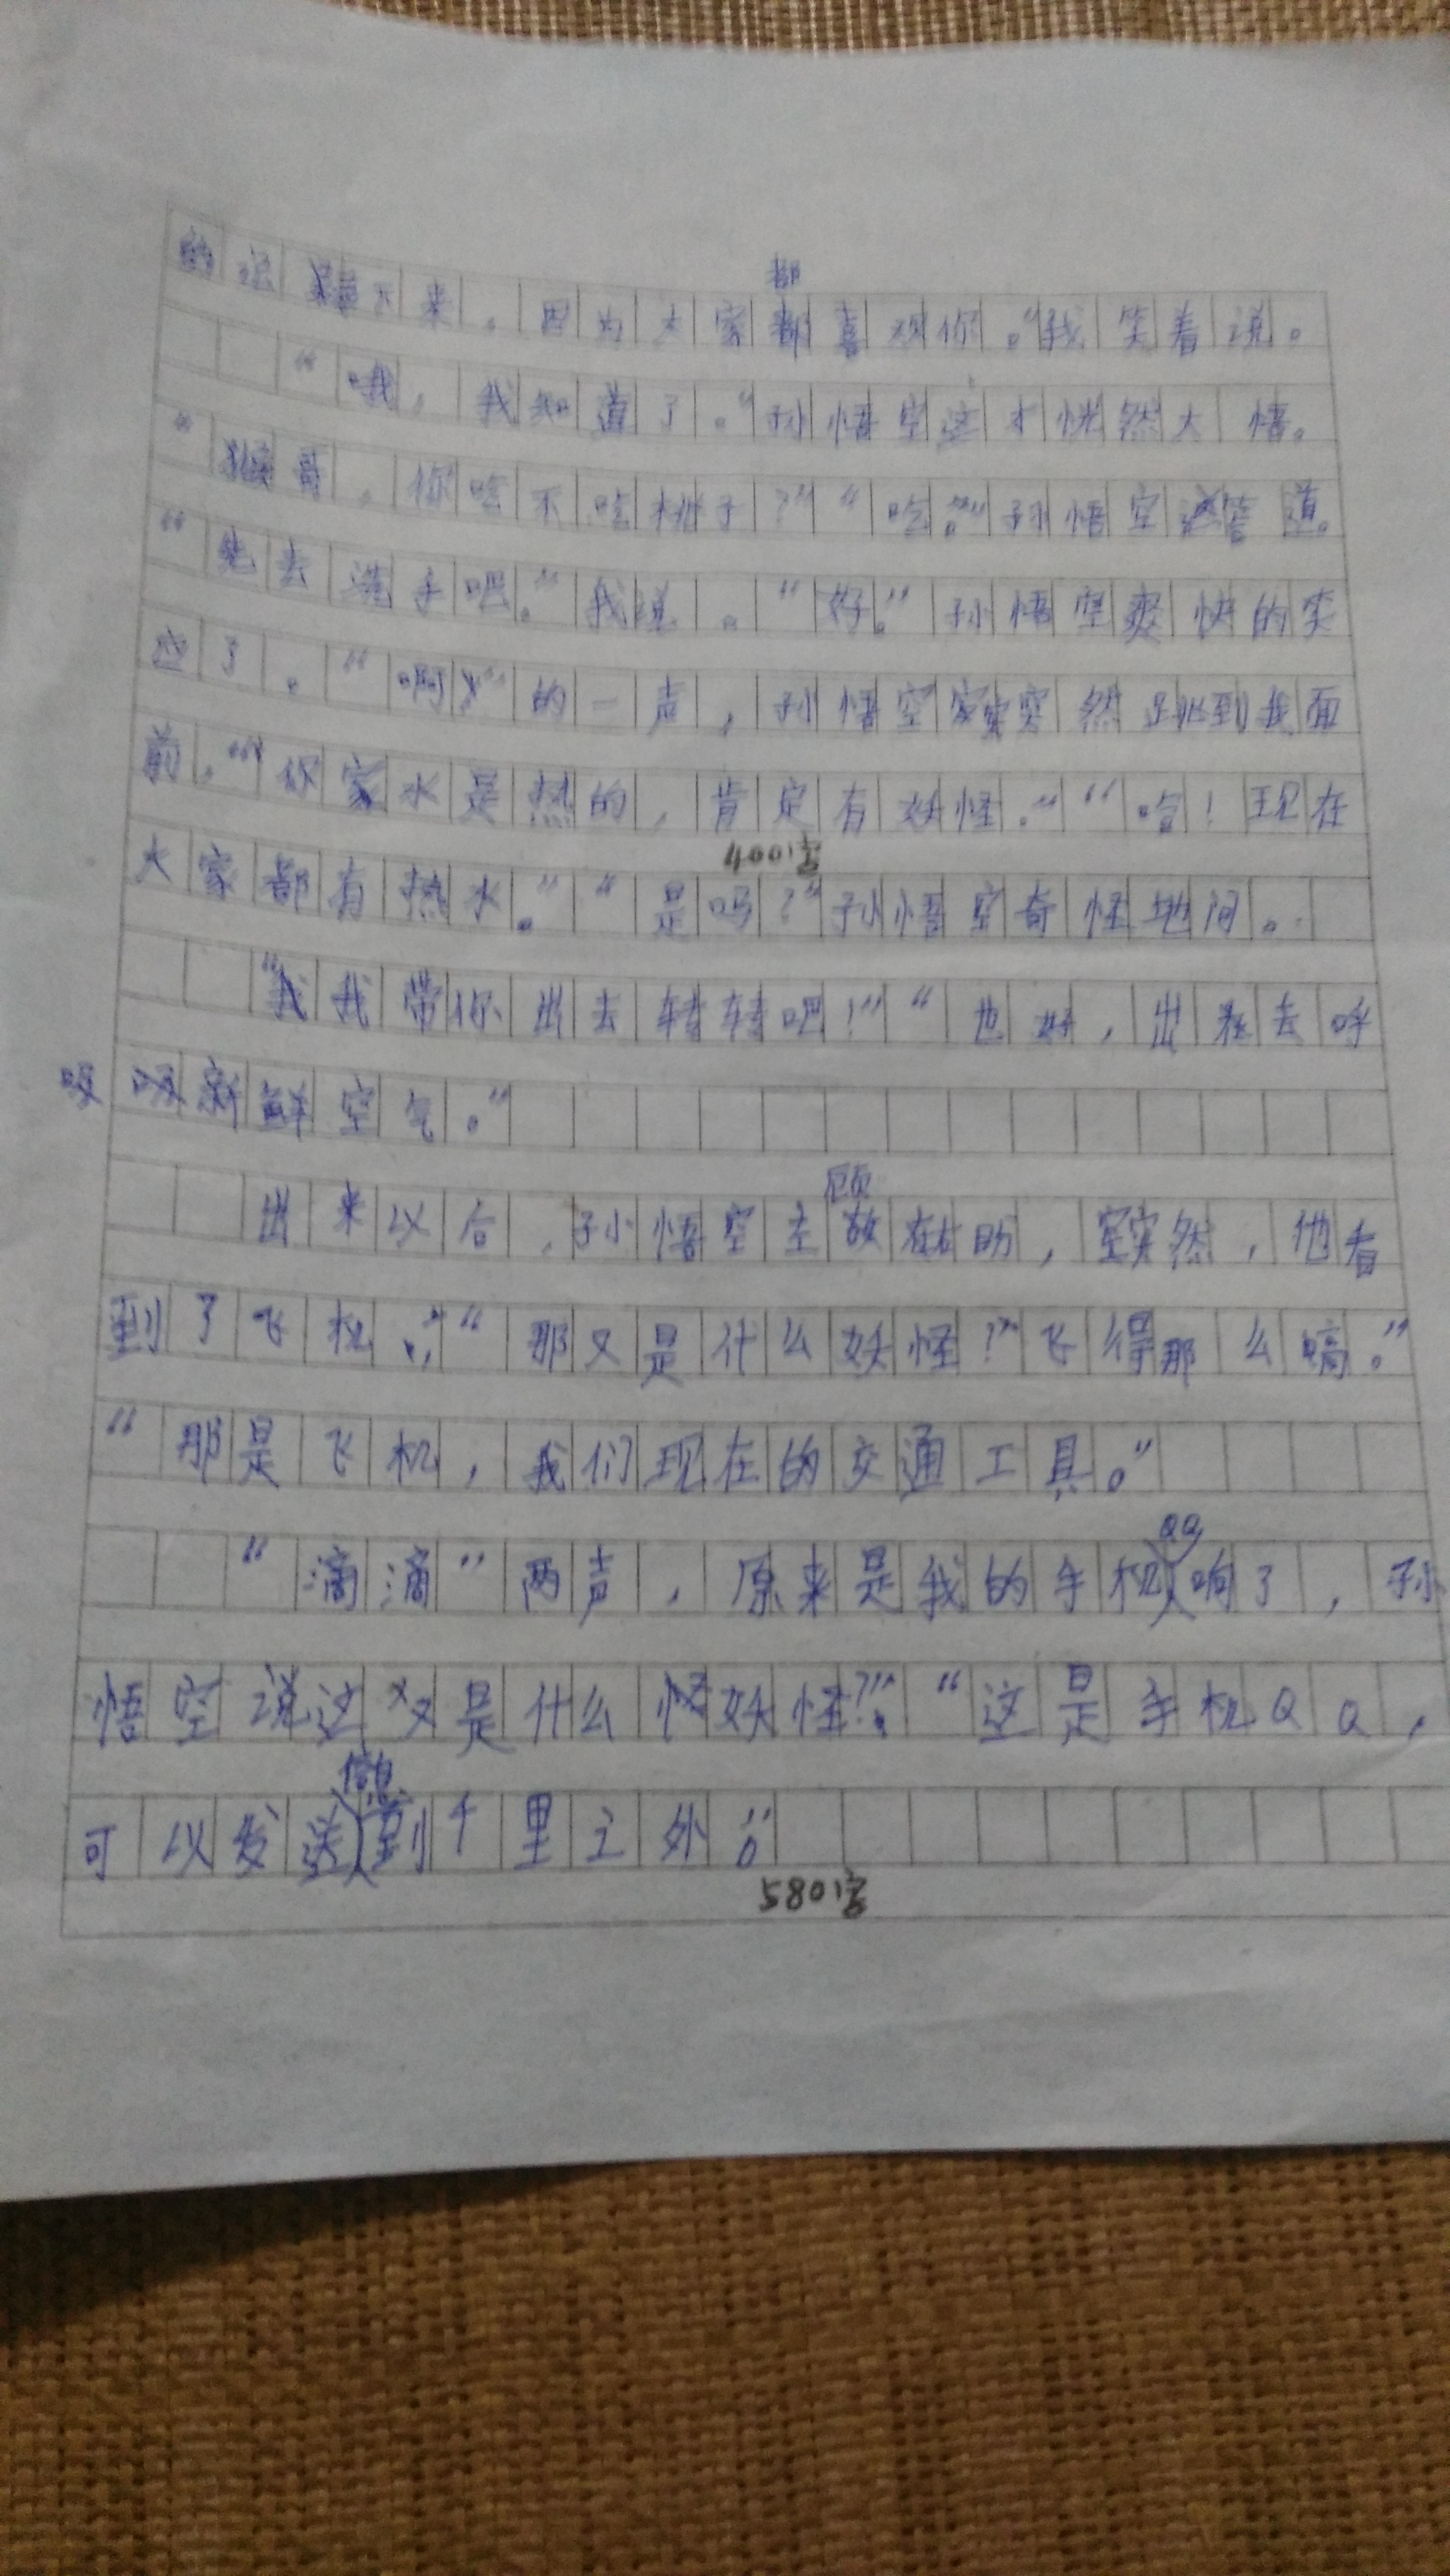 都
的 下来。因为大家都喜欢你。"我笑着说。
"哦,我知道了。"孙悟空这才恍然大悟。
"猴哥,你吃不吃桃子?""吃。"孙悟空答道。
"先去洗手吧。"我说。"好。"孙悟空爽快的答
应了。"啊"的一声,孙悟空突然跳到我面
前。"你家水是热的,肯定有妖怪。""哈!现在
400字
大家都有热水。""是吗?"孙悟空奇怪地问。
"我带你出去转转吧!""也好,出去呼
吸新鲜空气。"
顾
出来以后,孙悟空左 右盼,突然,他看
到了飞机。"那又是什么妖怪?飞得那么嗝。"
"那是飞机,我们现在的交通工具。"
QQ
"滴滴"两声,原来是我的手机响了,孙
悟空说这又是什么妖怪?""这是手机QQ,
信息
可以发送到千里之外。"
580字